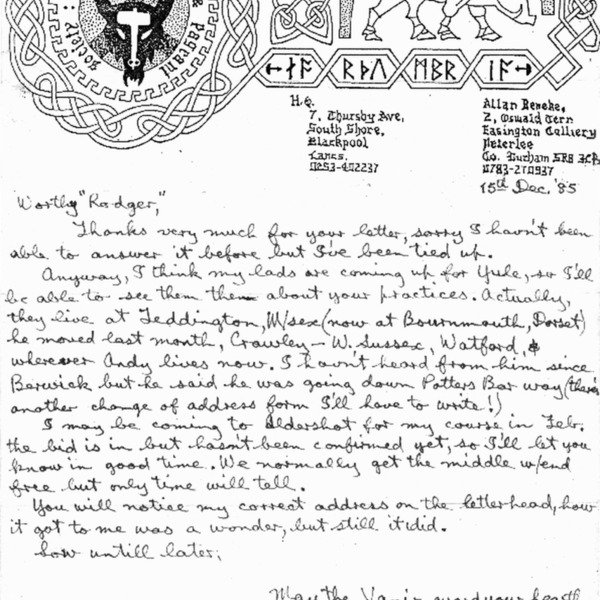 Society :
e Pageant
H.Q.
7, Thursby Ave,
South Shore,
Blackpool
Lancs.
0253-402237
Allan Beneke,
2, Oswald Terr
Easington Colliery
Peterlee
Co. Durham SR8 3CB
0783-270937
15th Dec, '85
Worthy "Radger,"
Thanks very much for your letter, sorry I havn't been
able to answer it before but I've been tied up.
Anyway, I think my lads are coming up for Yule, so I'll
be able to see them them about your practices. Actually,
they live at Teddington, M/sex (now at Bournmouth, Dorset)
he moved last month, Crawley – W. Sussex, Watford, &
wherever Andy lives now. I havn't heard from him since
Berwick but he said he was going down Potters Bar way (there's
another change of address form I'll have to write!)
I may be coming to Aldershot for my course in Feb.
the bid is in but hasn't been confirmed yet, so I'll let you
know in good time. We normally get the middle w/end
free but only time will tell.
You will notice my correct address on the letterhead, how
it got to me was a wonder, but still it did.
bow untill later;
May the Vanir guard your hearth